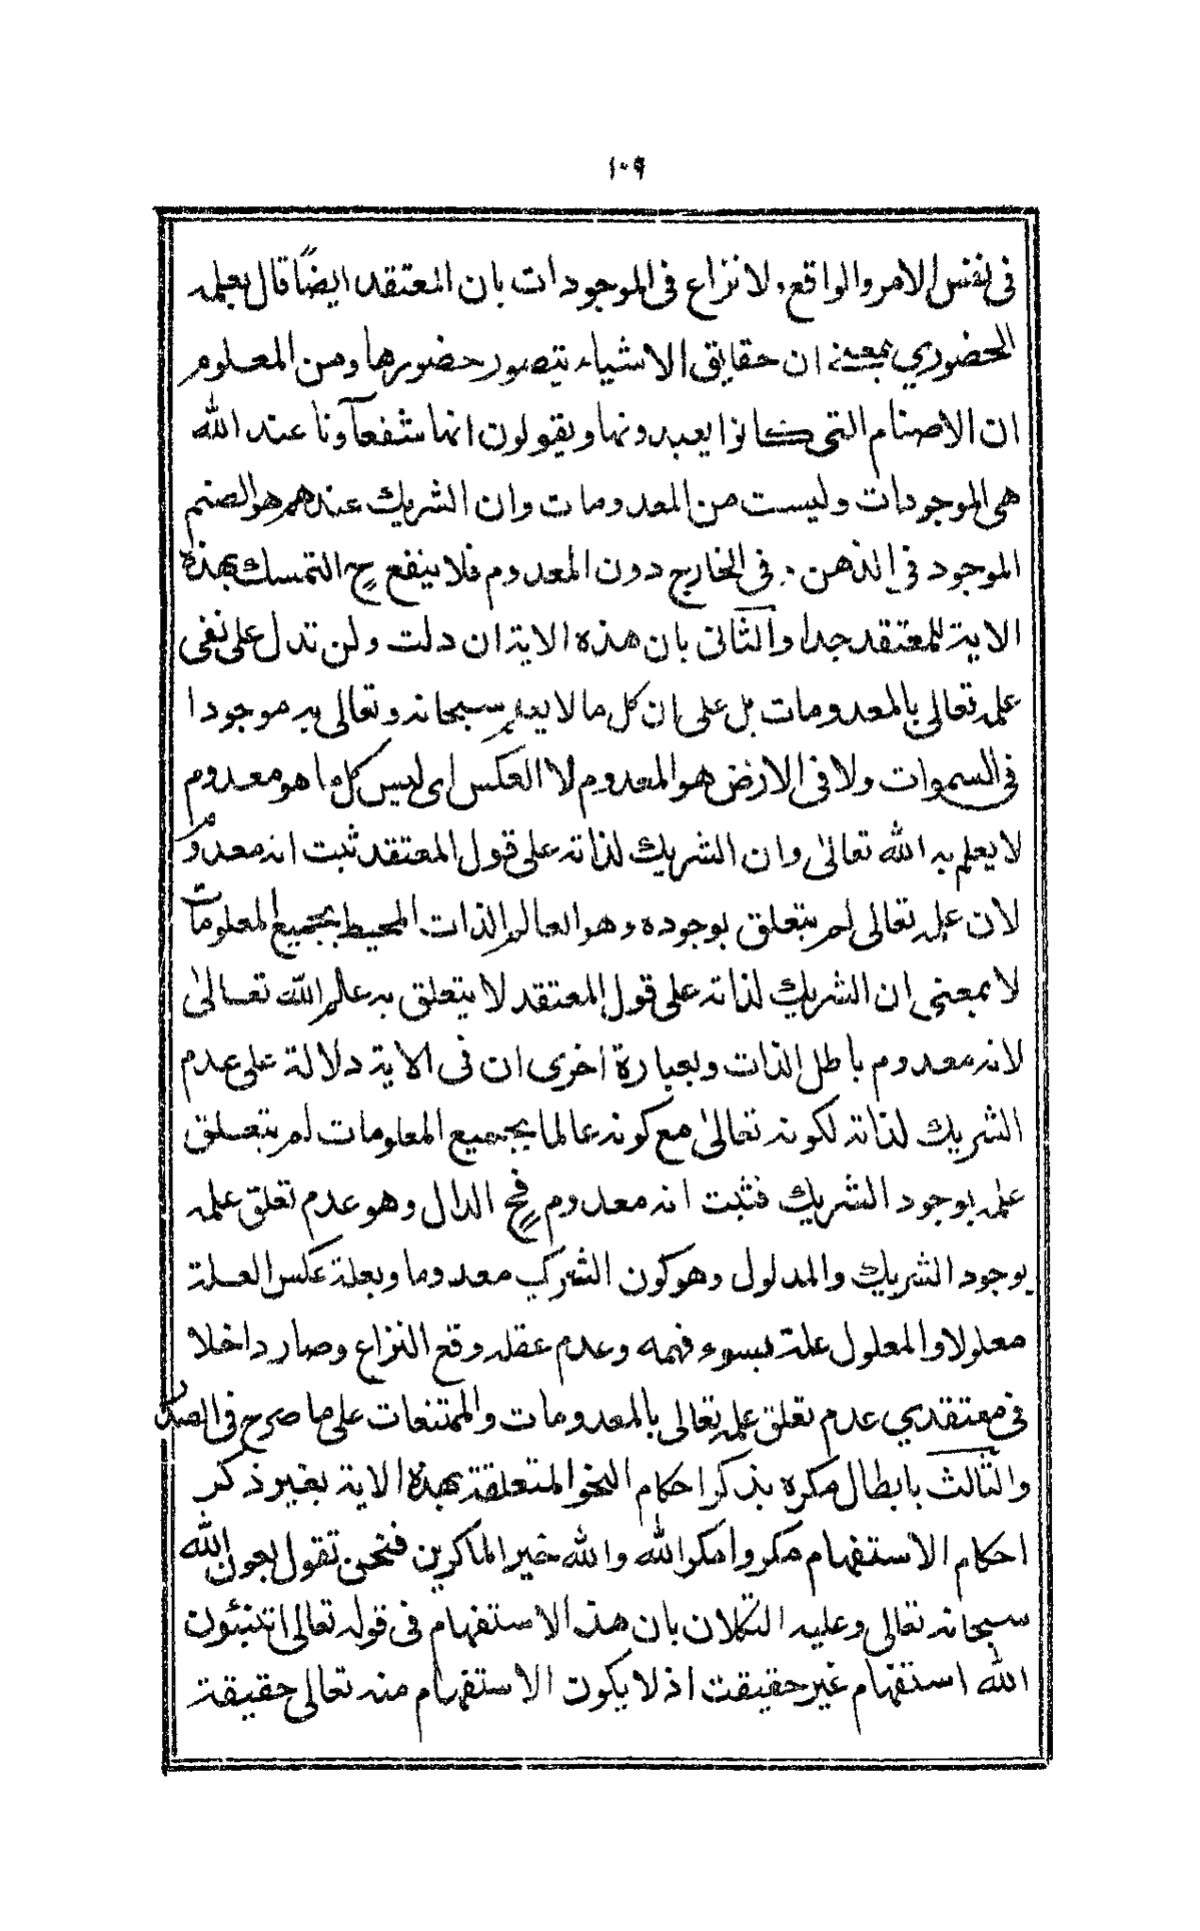 ١٠٩
فى نفس الامر والواقع ولا نزاع فى الموجودات بان المعتقد ايضًا قال بعلمه
الحضوري بمعنى ان حقايق الاشياء يتصور حضورها ومن المعلوم
ان الاصنام التى كانوا يعبدونها ويقولون انها شفعآونا عند الله
هى الموجودات وليست من المعدومات وان الشريك عندهم هو الصنم
الموجود فى الذهن و فى الخارج دون المعدوم فلا ينفع ح التمسك بهذه
الاية للمعتقد جدا والثانى بان هذه الاية ان دلت ولن تدل على نفى
علمه تعالى بالمعدومات بل على ان كل ما لا يعلم سبحانه وتعالى به موجودا
فى السموات ولا فى الارض هو المعدوم لا العكس اى ليس كل ما هو معدوم
لا يعلم به الله تعالىٰ وان الشريك لذاته على قول المعتقد ثبت انه معدوم
لان علمه تعالى لم يتعلق بوجوده وهو العالم الذات المحيط بجميع المعلومات
لا بمعنى ان الشريك لذاته على قول المعتقد لا يتعلق به علم الله تعالىٰ
لانه معدوم باطل الذات وبعبارة اخرى ان فى الاية دلالة على عدم
الشريك لذاته لكونه تعالىٰ مع كونه عالما بجميع المعلومات لم يتعلق
علمه بوجود الشريك فثبت انه معدوم فح الدال وهو عدم تعلق علمه
بوجود الشريك والمدلول وهو كون الشريك معدوما وبعلة عكس العلة
معلولا والمعلول علة بسوء فهمه وعدم عقله وقع النزاع وصار داخلا
فى معتقدي عدم تعلق علمه تعالى بالمعدومات والممتنعات على ما صرح فى الصدر
والثالث بابطال مكره بذكر احكام النحو المتعلقة بهذه الاية بغير ذكر
احكام الاستفهام مكروا مكر الله والله خير الماكرين فنحن نقول بعون الله
سبحانه تعالى وعليه التكلان بان هذا الاستفهام فى قوله تعالى اتنبئون
الله استفهام غير حقيقت اذ لا يكون الاستفهام منه تعالى حقيقة